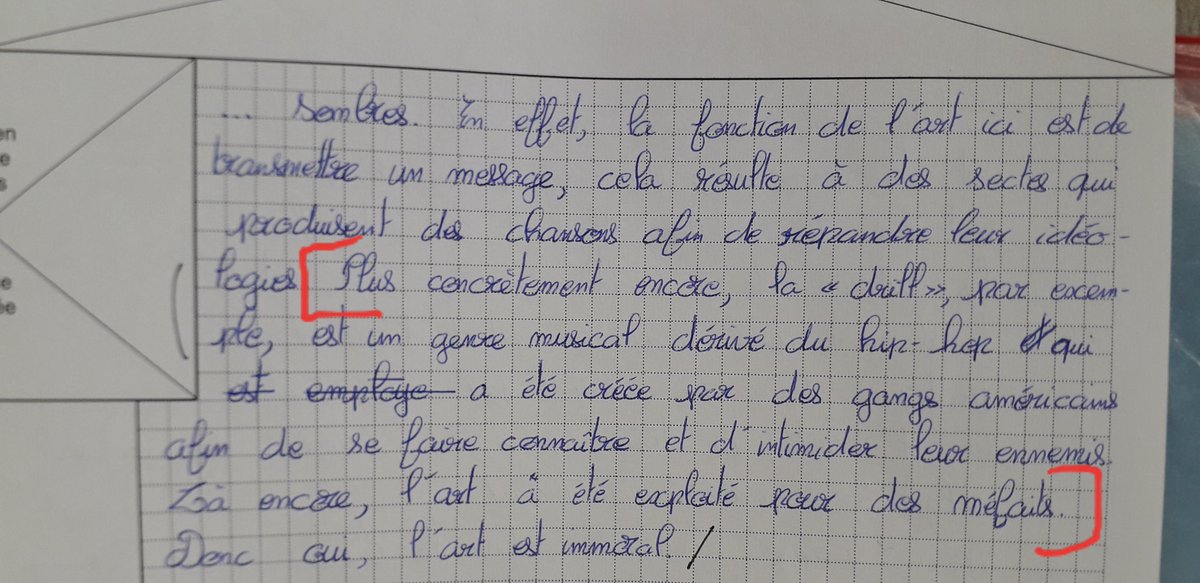 ... sombres. En effet, la fonction de l'art ici est de
transmettre un message, cela résulte à des sectes qui
produisent des chansons afin de répandre leur idéo-
logies. Plus concrètement encore, la « drill », par excem-
ple, est un genre musical dérivé du hip-hop et qui
est employe a été créée par des gangs américains
afin de se faire connaître et d'intimider leur ennemis.
Là encore, l'art à été exploité pour des méfaits.
Donc oui, l'art est immoral /